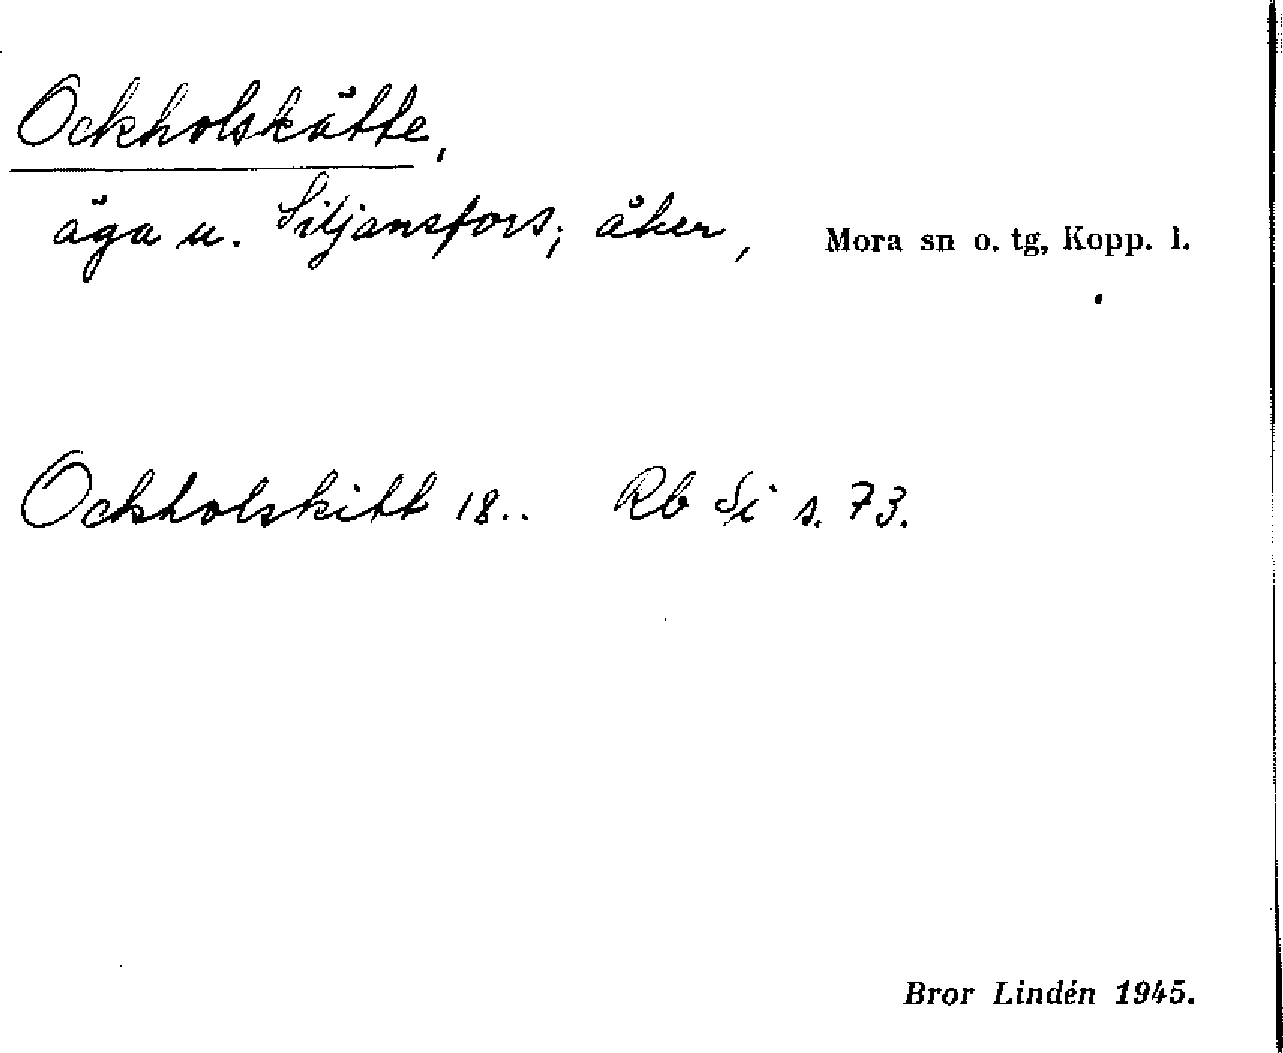 Ockholskätte,
äga u. Siljansfors; åker, Mora sn o. tg, Kopp. l.
Ockholskitt 18.. Rb Si s. 73.
Bror Lindén 1945.